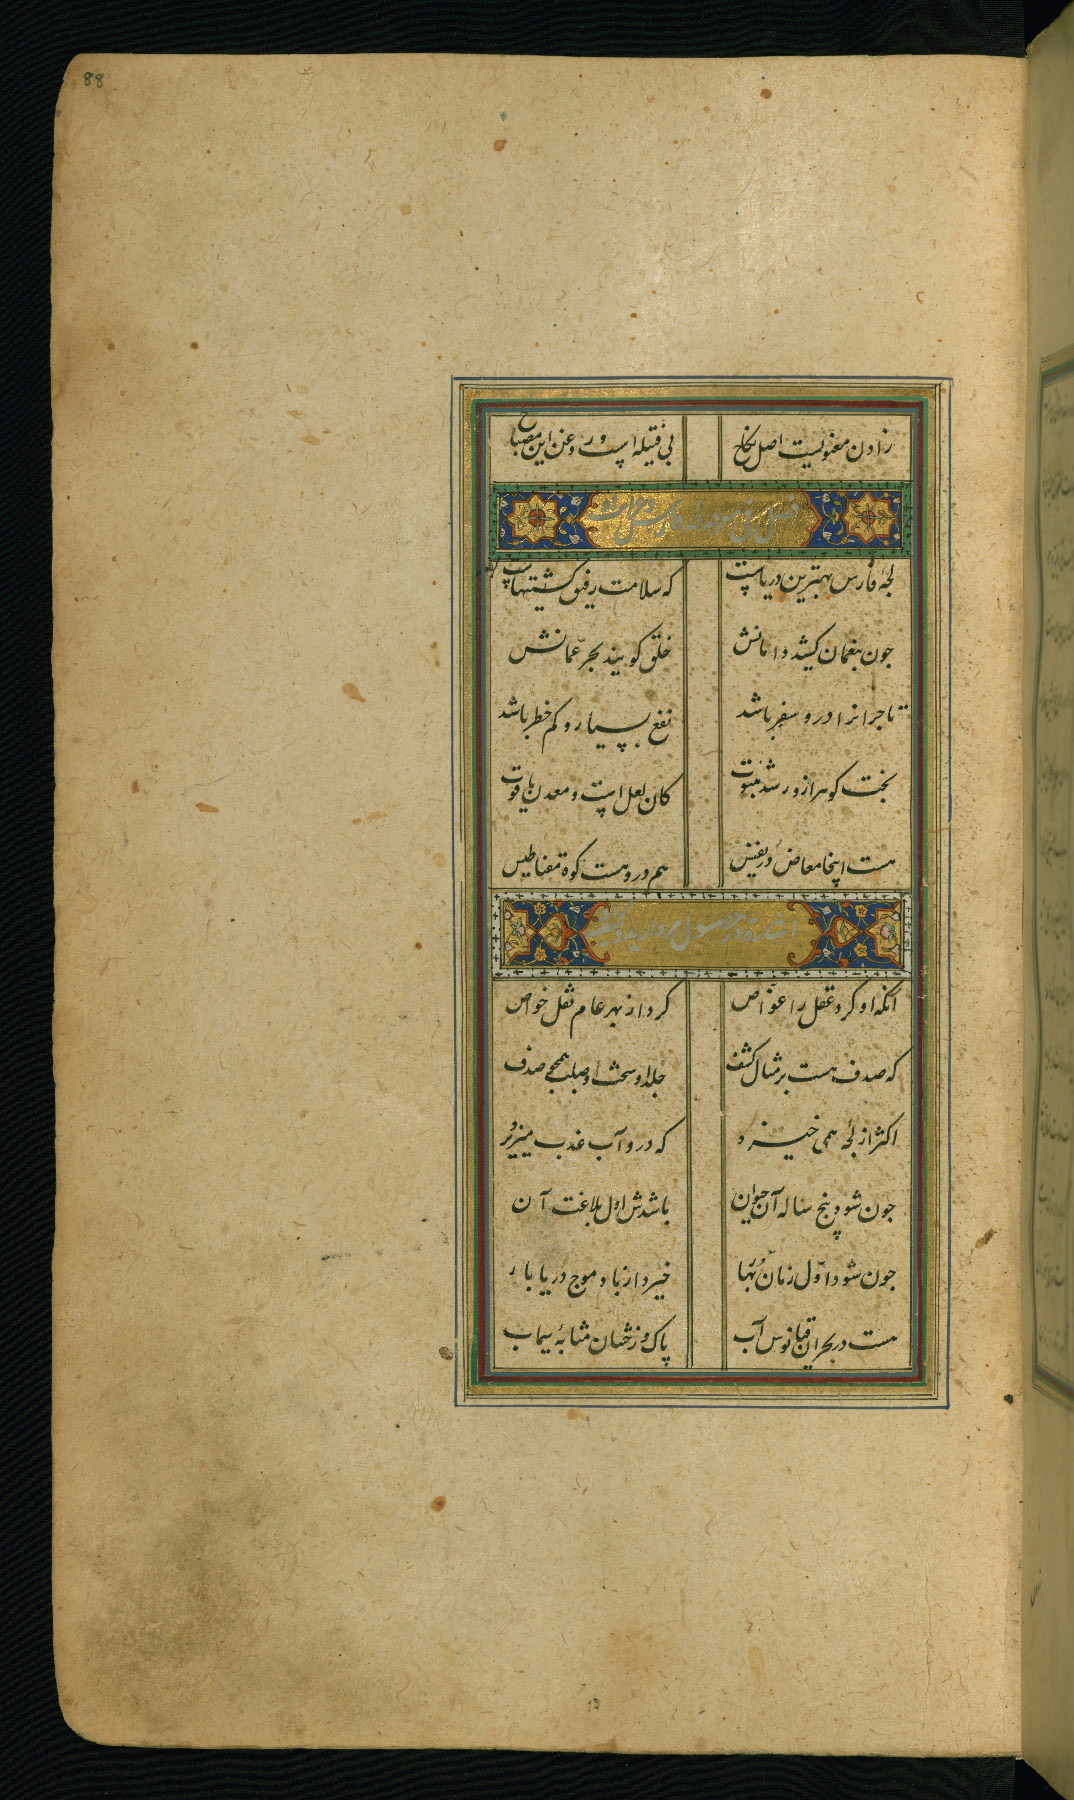 88
زادن معنویست اصل نکاح بی فتیله است و روغن این مصباح
لجۀ فارس بهترین دریاست که سلامت رفیق کشتیهاست
چون بنعمان کشید دامانش خلق کویند بحر عمانش
تاجرانرا درو سفر باشد نفع بسیار و کم خطر باشد
کوهر ازو کان لعل است و معدن یاقوت
هست اینجا معاض در نفیس هم درو هست کوه مقناطیس
حصول مروارید
آنکه او کرد عقل را غواص کرد از بهر عام نقل خواص
که صدف هست بر مثال کشف جلد او سخت و صلب همچو صدف
اکثر از لجه همی خیزد که درو آب عذب میریزد
چون شود پنج ساله آن حیوان باشدش اول بلاغت آن
چون شود اول زمان بهار خیزد از باد موج دریا بار
هست در بحر اقیانوس آب پاک و رخشان مثابۀ سیماب